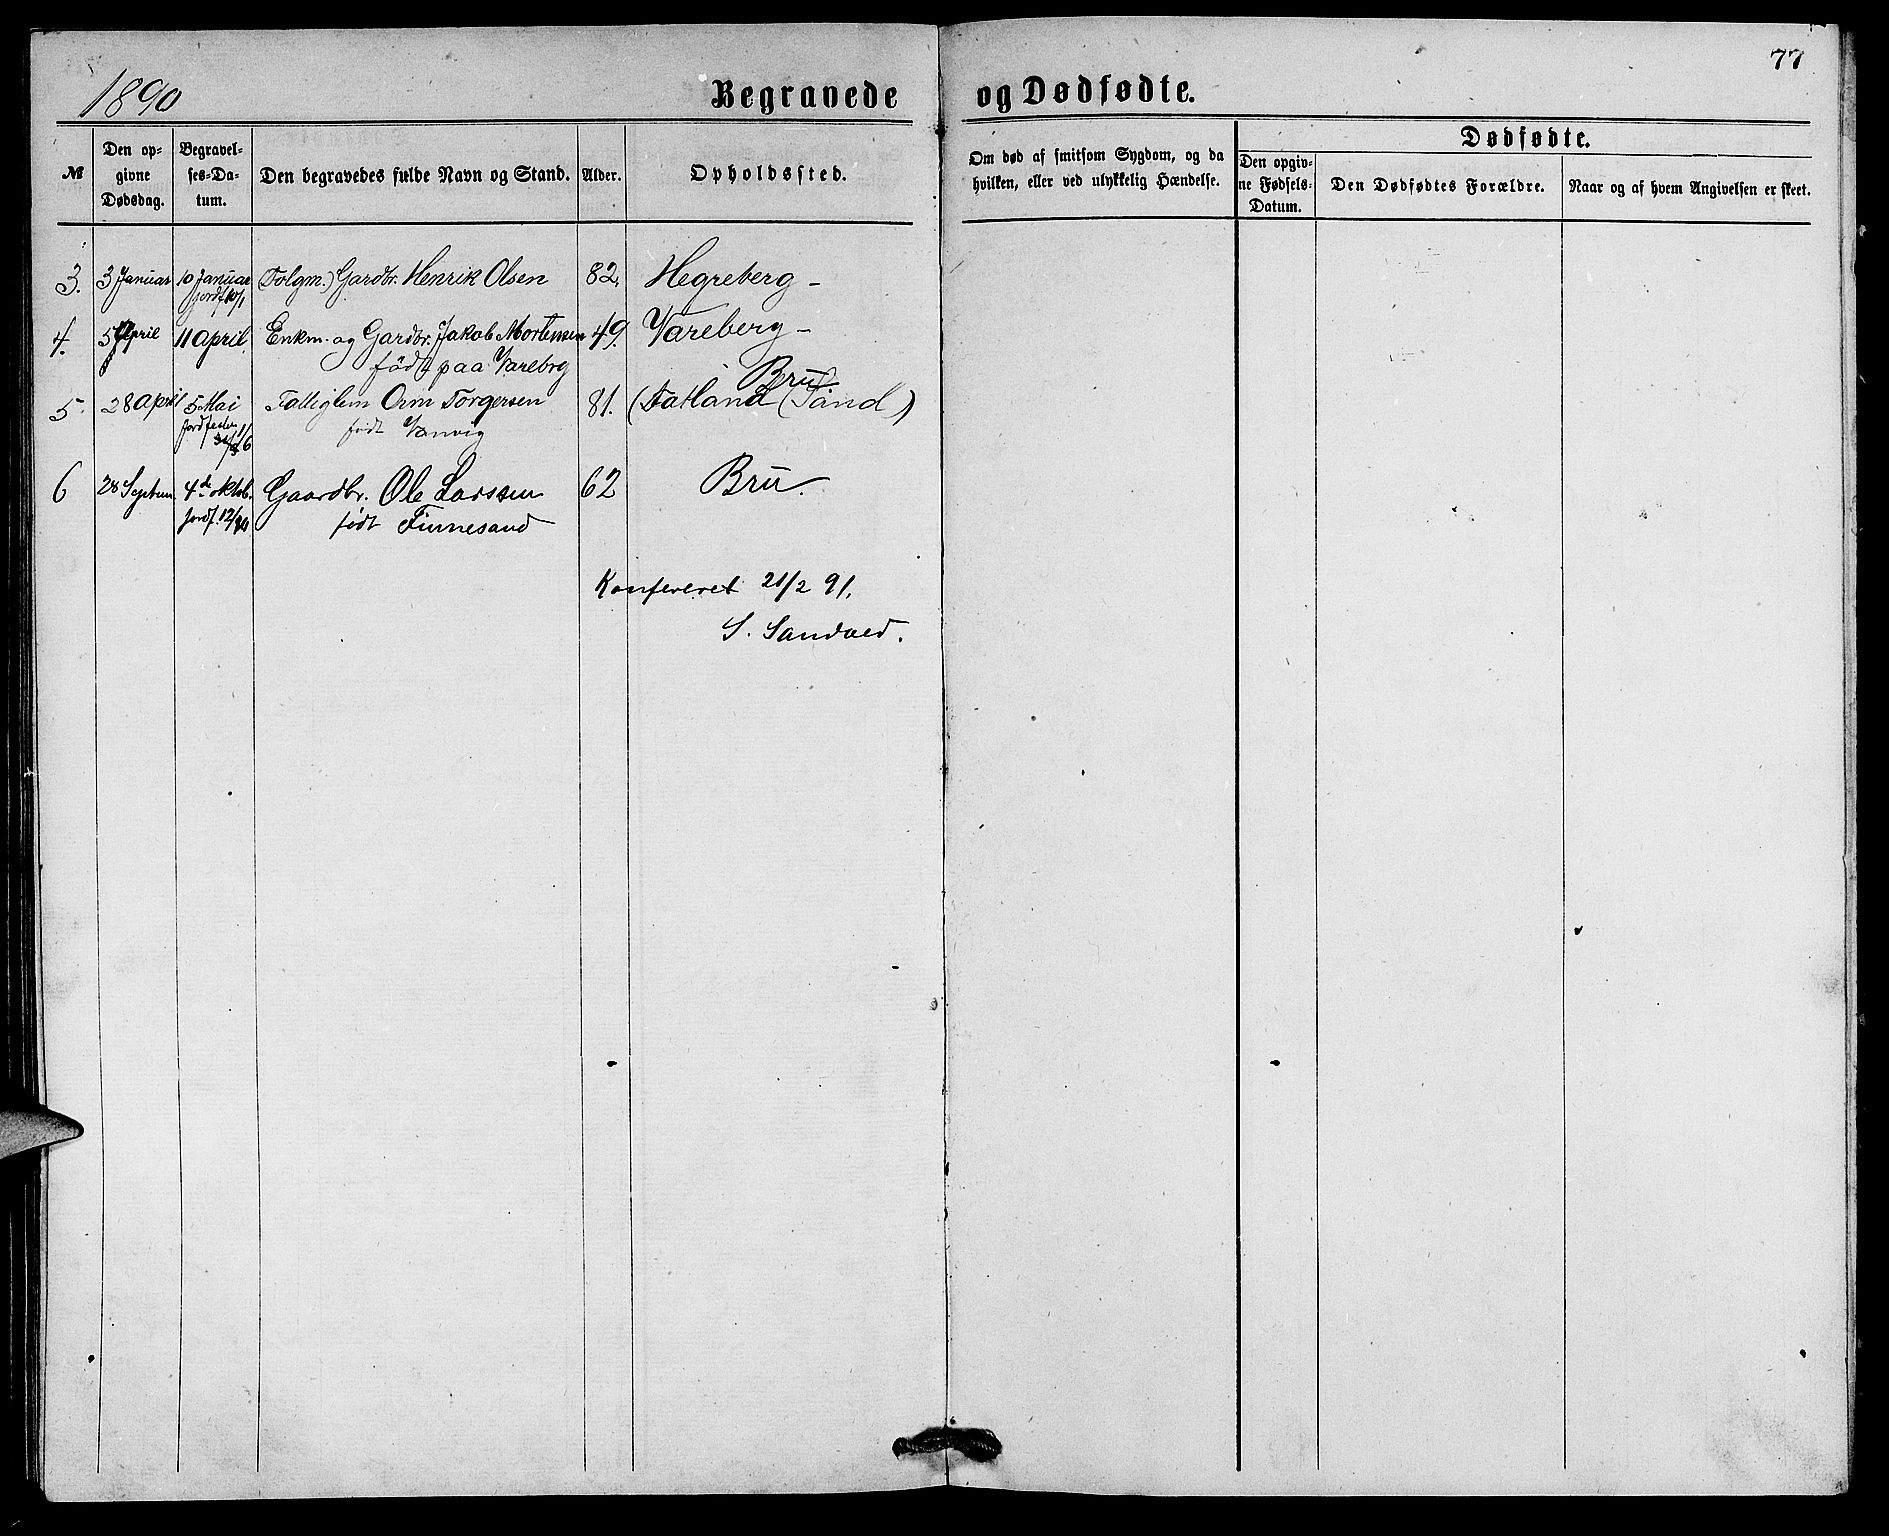 77
1890
Begravede og Dødfødte.
№
Den opgivne Dødsdag.
Begravelses-Datum.
Den begravedes fulde Navn og Stand.
Alder.
Opholdssted.
Om død af smitsom Sygdom, og da hvilken, eller ved ulykkelig Hændelse.
Dødfødte.
Den opgivne Fødsels-Datum.
Den Dødfødtes Forældre.
Naar og af hvem Angivelsen er skeet.
3. 3 Januar 10 Januar Folgm.) Gardbr. Henrik Olsen 82, Hegreberg -
jordf 10/1
4. 5 April 11 April. Enkm. og Gardbr. Jakob Mortensen 49. Vareberg -
født paa Varebrg
Bru
5. 28 April 5 Mai Fattiglem Orm Torgersen 81. (Fatland (Sand)
Jordfestn født Vanvig
1/6
6 28 Septem. 4de oktob. Gaardbr. Ole Larssen 62 Bru.
Jordf. 12/10 født Finnesand
Konfereret 21/2 91.
S. Sandved.